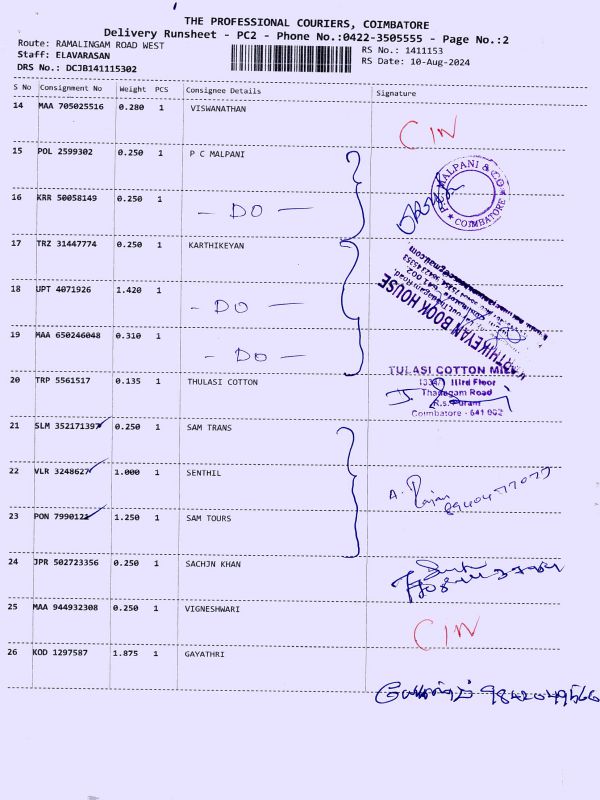 THE PROFESSIONAL COURIERS, COIMBATORE
Delivery Runsheet - PC2 - Phone No.:0422-3505555 - Page No.:2
Route: RAMALINGAM ROAD WEST
RS No.: 1411153
Staff: ELAVARASAN
RS Date: 10-Aug-2024
DRS No.: DCJB141115302
S No Consignment No Weight PCS Consignee Details Signature
14 MAA 705025516 0.280 1 VISWANATHAN
CIN
15 POL 2599302 0.250 1 P C MALPANI
MALPANI & CO
COIMBATORE
16 KRR 50058149 0.250 1
- DO -
17 TRZ 31447774 0.250 1 KARTHIKEYAN
KARTHIKEYAN BOOK HOUSE
18 UPT 4071926 1.420 1
- DO -
19 MAA 650246048 0.310 1
- DO -
20 TRP 5561517 0.135 1 THULASI COTTON
TULASI COTTON MILL
IIIrd Floor
Thadagam Road
R.s. Puram
Coimbatore - 641 002
21 SLM 352171397 0.250 1 SAM TRANS
22 VLR 3248627 1.000 1 SENTHIL
A. Rajan
23 PON 7990121 1.250 1 SAM TOURS
24 JPR 502723356 0.250 1 SACHJN KHAN
25 MAA 944932308 0.250 1 VIGNESHWARI
CIN
26 KOD 1297587 1.875 1 GAYATHRI
9842049566